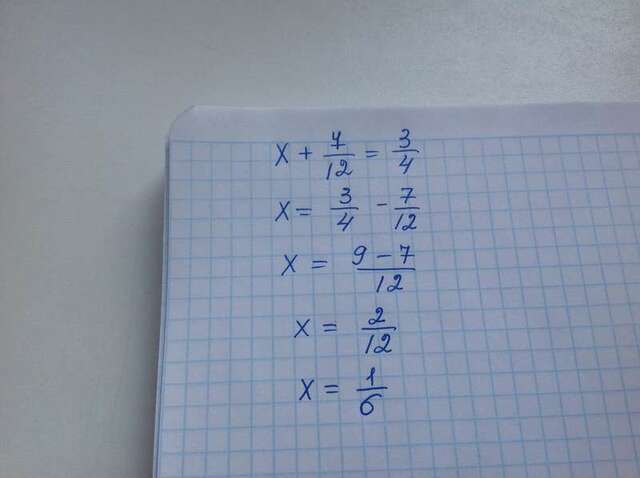 x + 7/12 = 3/4
x = 3/4 - 7/12
x = 9 - 7/12
x = 2/12
x = 1/6